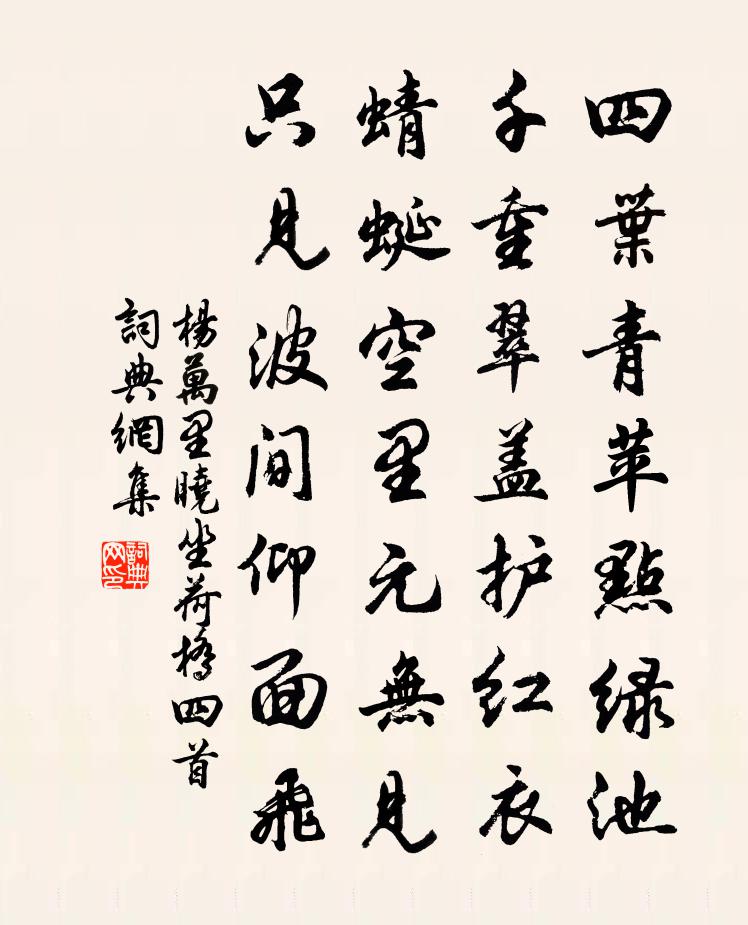 四葉青苹點緑池
千重翠盖护红衣
蜻蜓空里元無見
只見波间仰面飛
楊萬里曉坐荷橋四首
詞典網集
詞典网印